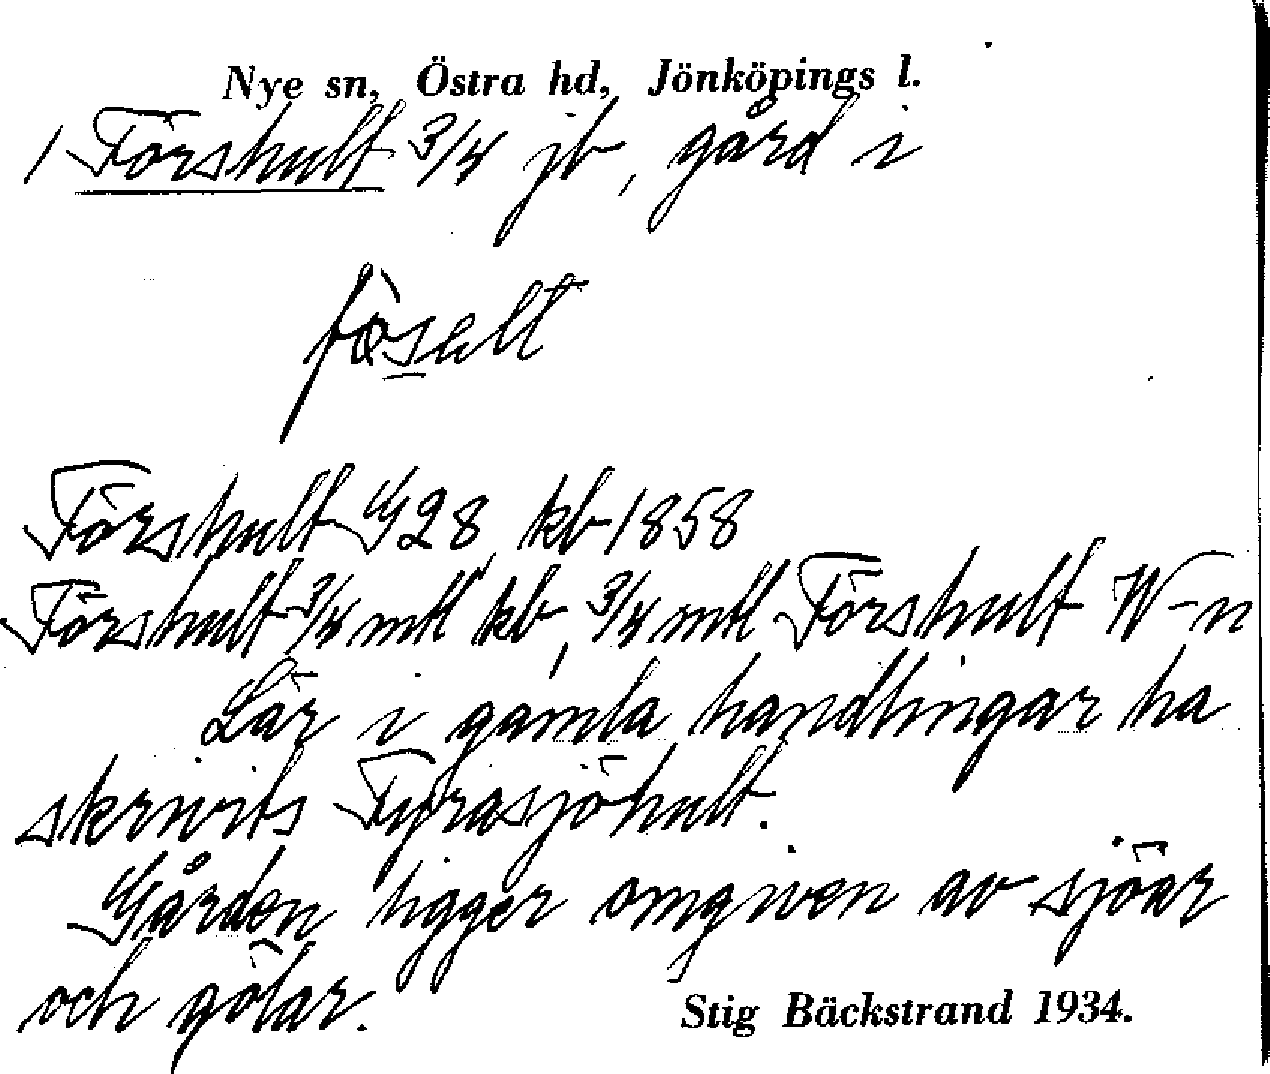 Nye sn, Östra hd, Jönköpings l.
1 Förshult 3/4 jb, gård i
Förshult G28 kb 1858
Förshult 3/4 mtl kb, 3/4 mtl Förshult W-n
Lär i gamla handlingar ha
skrivits Fyrasjöhult.
Gården ligger omgiven av sjöar
och gölar.
Stig Bäckstrand 1934.